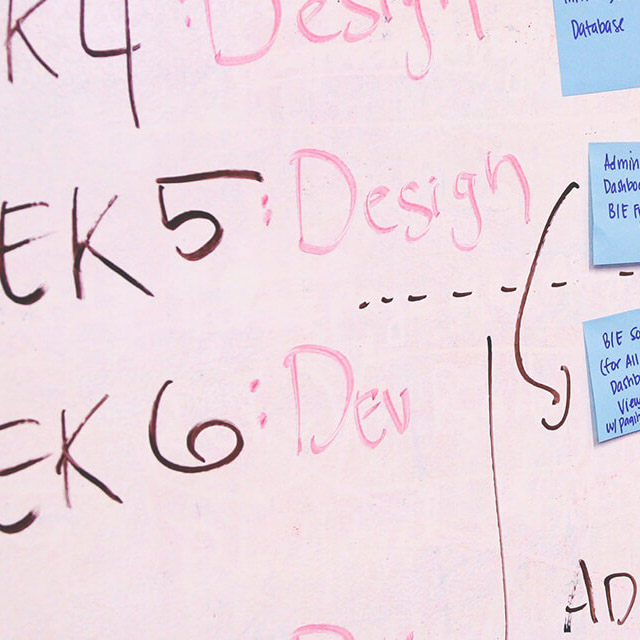 EK 4 : Design
EEK 5 : Design
EEK 6 : Dev
Database
Admin
Dashbo
BIE F
BIE So
(for All
Dashb
View
w/pagin
AD